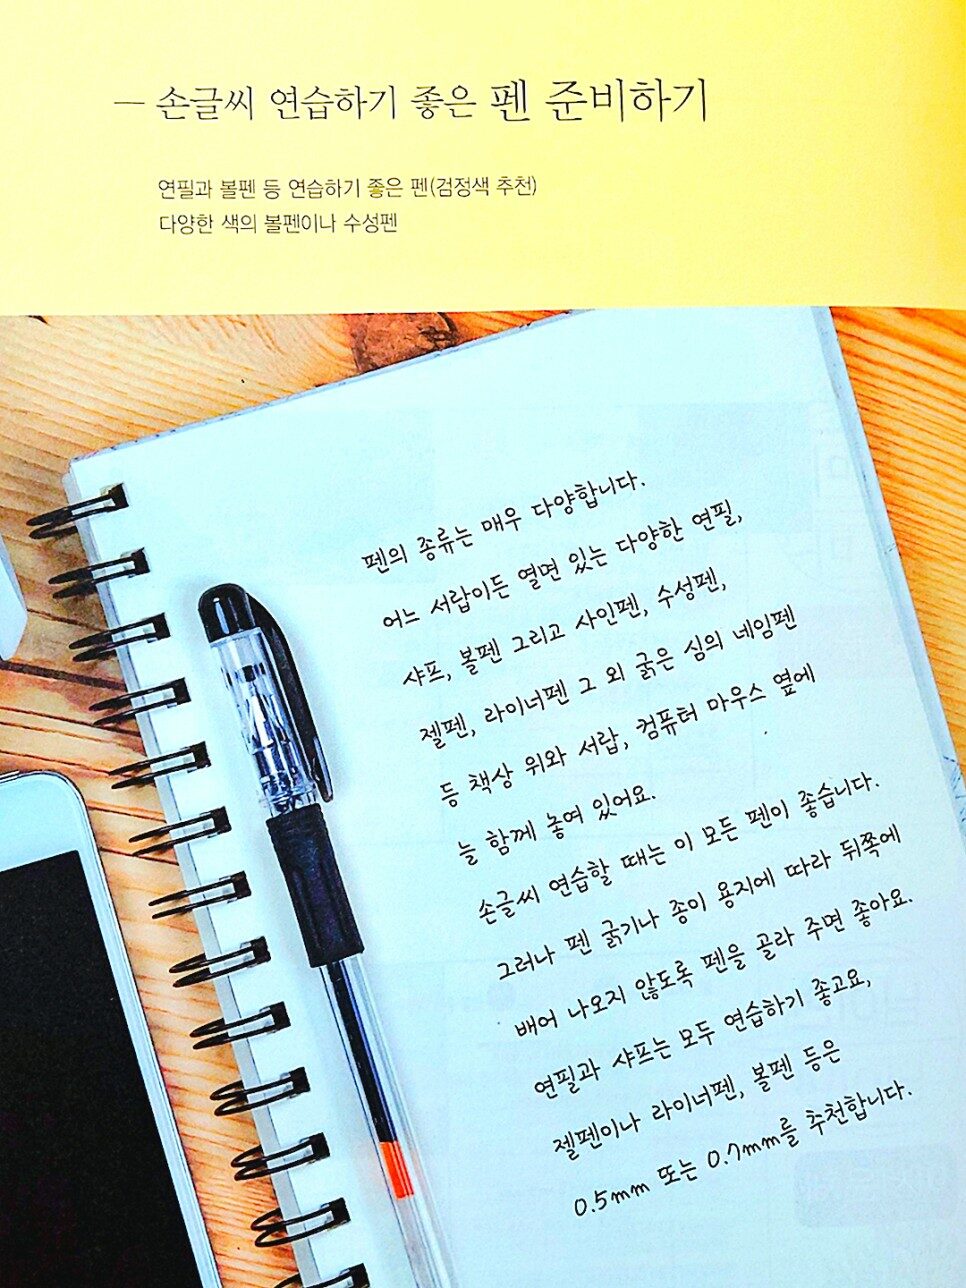 — 손글씨 연습하기 좋은 펜 준비하기
연필과 볼펜 등 연습하기 좋은 펜(검정색 추천)
다양한 색의 볼펜이나 수성펜
펜의 종류는 매우 다양합니다.
어느 서랍이든 열면 있는 다양한 연필,
샤프, 볼펜 그리고 사인펜, 수성펜,
젤펜, 라이너펜 그 외 굵은 심의 네임펜
등 책상 위와 서랍, 컴퓨터 마우스 옆에
늘 함께 놓여 있어요.
손글씨 연습할 때는 이 모든 펜이 좋습니다.
그러나 펜 굵기나 종이 용지에 따라 뒤쪽에
배어 나오지 않도록 펜을 골라 주면 좋아요.
연필과 샤프는 모두 연습하기 좋고요,
젤펜이나 라이너펜, 볼펜 등은
0.5mm 또는 0.7mm를 추천합니다.